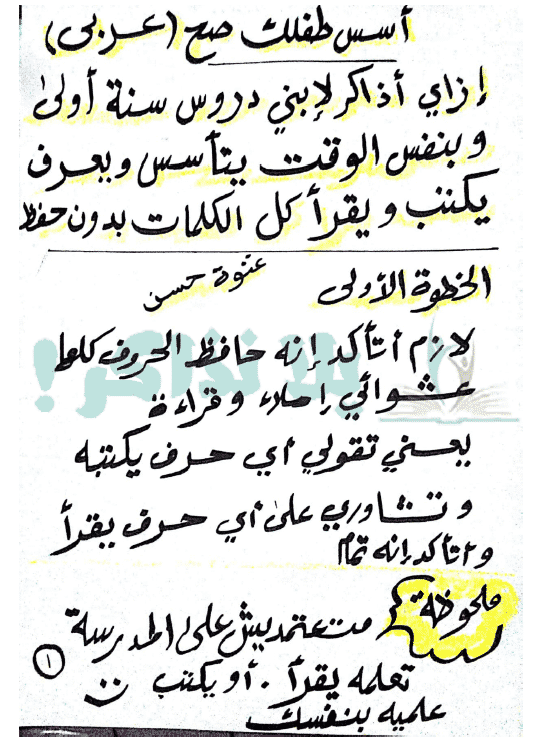 أسس طفلك صح (عربى)
إزاي أذاكر لإبني دروس سنة أولى
وبنفس الوقت يتأسس ويعرف
يكتب ويقرأ كل الكلمات بدون حفظ
الخطوة الأولى
عنودة حسن
لازم أتأكد إنه حافظ الحروف كلها
يلا نذاكر!
عشوائي إملاء وقراءة
يعني تقولي أي حرف يكتبه
وتشاوري على أي حرف يقرأ
وأتأكد إنه تمام
ملحوظة
متعتمديش على المدرسة
تعلمه يقرأ . أو يكتب
علميه بنفسك
١